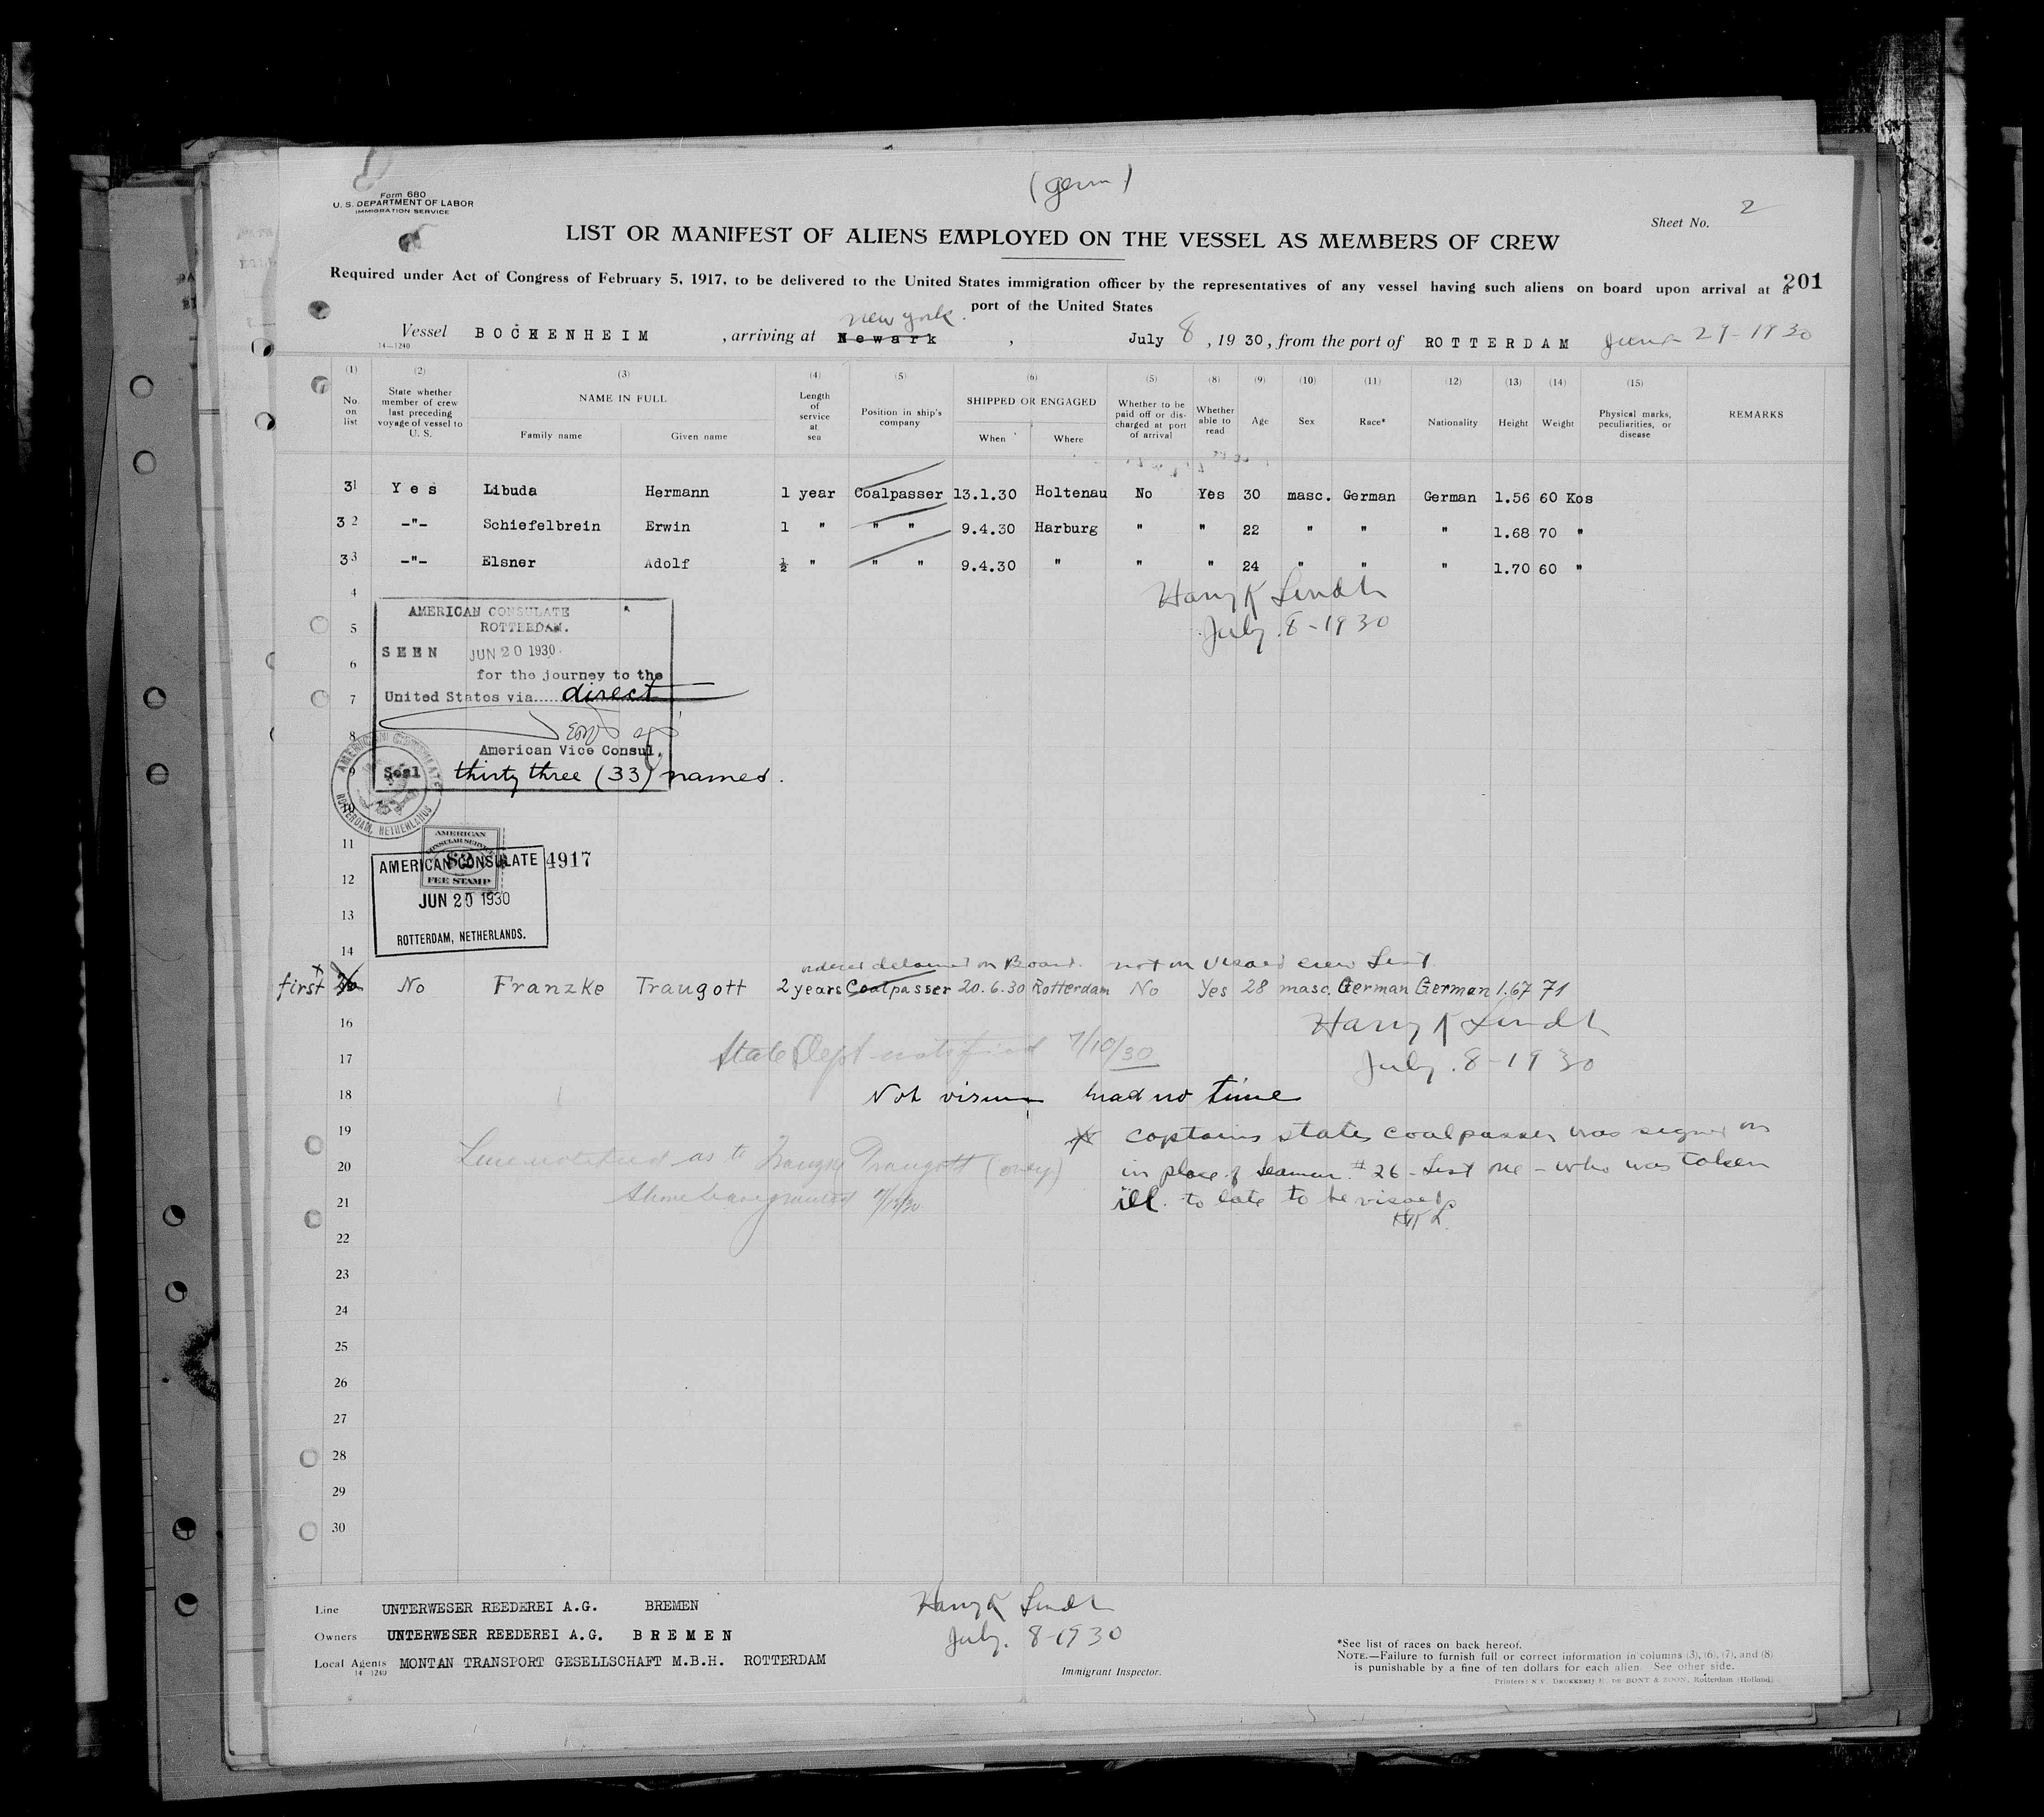 (germ)
Form 680
U. S. DEPARTMENT OF LABOR
IMMIGRATION SERVICE
Sheet No. 2
LIST OR MANIFEST OF ALIENS EMPLOYED ON THE VESSEL AS MEMBERS OF CREW
Required under Act of Congress of February 5, 1917, to be delivered to the United States immigration officer by the representatives of any vessel having such aliens on board upon arrival at a
201
port of the United States
New York
Vessel BOCKENHEIM , arriving at Newark , July 8 , 19 30, from the port of ROTTERDAM June 29-1930
14—1240
(1) (2) (3) (4) (5) (6) (5) (8) (9) (10) (11) (12) (13) (14) (15)
No. on list
State whether member of crew last preceding voyage of vessel to U. S.
NAME IN FULL
Family name
Given name
Length of service at sea
Position in ship's company
SHIPPED OR ENGAGED
When
Where
Whether to be paid off or discharged at port of arrival
Whether able to read
Age
Sex
Race*
Nationality
Height
Weight
Physical marks, peculiarities, or disease
REMARKS
31 Yes Libuda Hermann 1 year Coalpasser 13.1.30 Holtenau No Yes 30 masc. German German 1.56 60 Kos
32 -"- Schiefelbrein Erwin 1 " " " 9.4.30 Harburg " " 22 " " " 1.68 70 "
33 -"- Elsner Adolf ½ " " " 9.4.30 " " " 24 " " " 1.70 60 "
4
Harry K Lindh
July 8-1930
AMERICAN CONSULATE
ROTTERDAM.
5
SEEN JUN 20 1930
6
for the journey to the
United States via..... direct
7
8
American Vice Consul.
9
Seal thirty three (33) names.
AMERICAN CONSULATE
ROTTERDAM, NETHERLANDS
10
11
AMERICAN
CONSULAR SERVICE
FEE STAMP
AMERICAN CONSULATE 4917
12
JUN 20 1930
13
ROTTERDAM, NETHERLANDS.
14
ordered detained on Board. not on Visaed crew List
first No Franzke Traugott 2 years Coalpasser 20.6.30 Rotterdam No Yes 28 masc. German German 1.67 71
16
Harry K Lindh
July. 8-1930
17
State Dept notified 7/10/30
18
Not had no time
19
captains states coalpasser was signed on
20
in place of seaman #26 - List one - who was taken
21
ill. to late to be visaed
HKL
notified as to Traugott (only)
22
23
24
25
26
27
28
29
30
Line UNTERWESER REEDEREI A.G. BREMEN
Owners UNTERWESER REEDEREI A.G. BREMEN
Local Agents MONTAN TRANSPORT GESELLSCHAFT M.B.H. ROTTERDAM
14—1240
Harry K Lindh
July. 8-1930
Immigrant Inspector.
*See list of races on back hereof.
NOTE.—Failure to furnish full or correct information in columns (3), (6), (7), and (8)
is punishable by a fine of ten dollars for each alien. See other side.
Printers: N.V. DRUKKERIJ F. DE BONT & ZOON, Rotterdam (Holland)